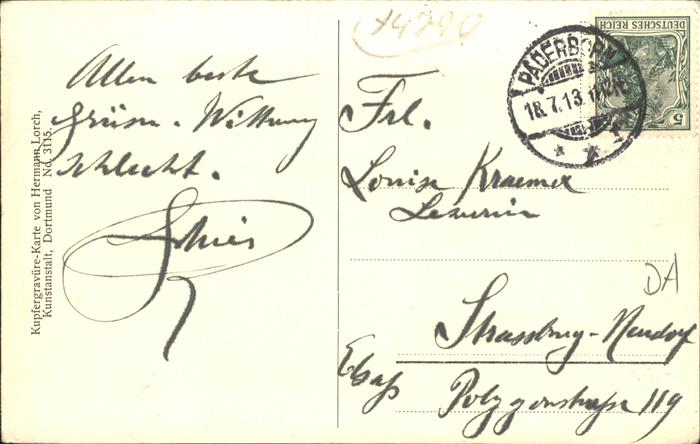 Kupfergravüre-Karte von Hermann Lorch,
Kunstanstalt, Dortmund No. 3115.
Allen beste
Grüsse. Wittrung
schlecht.
x4790
DEUTSCHES REICH
5
PADERBORN
18.7.13.
Frl.
Louise Kraemer
DA
Strassburg-Neudorf
Elsaß
Polygonstraße 119